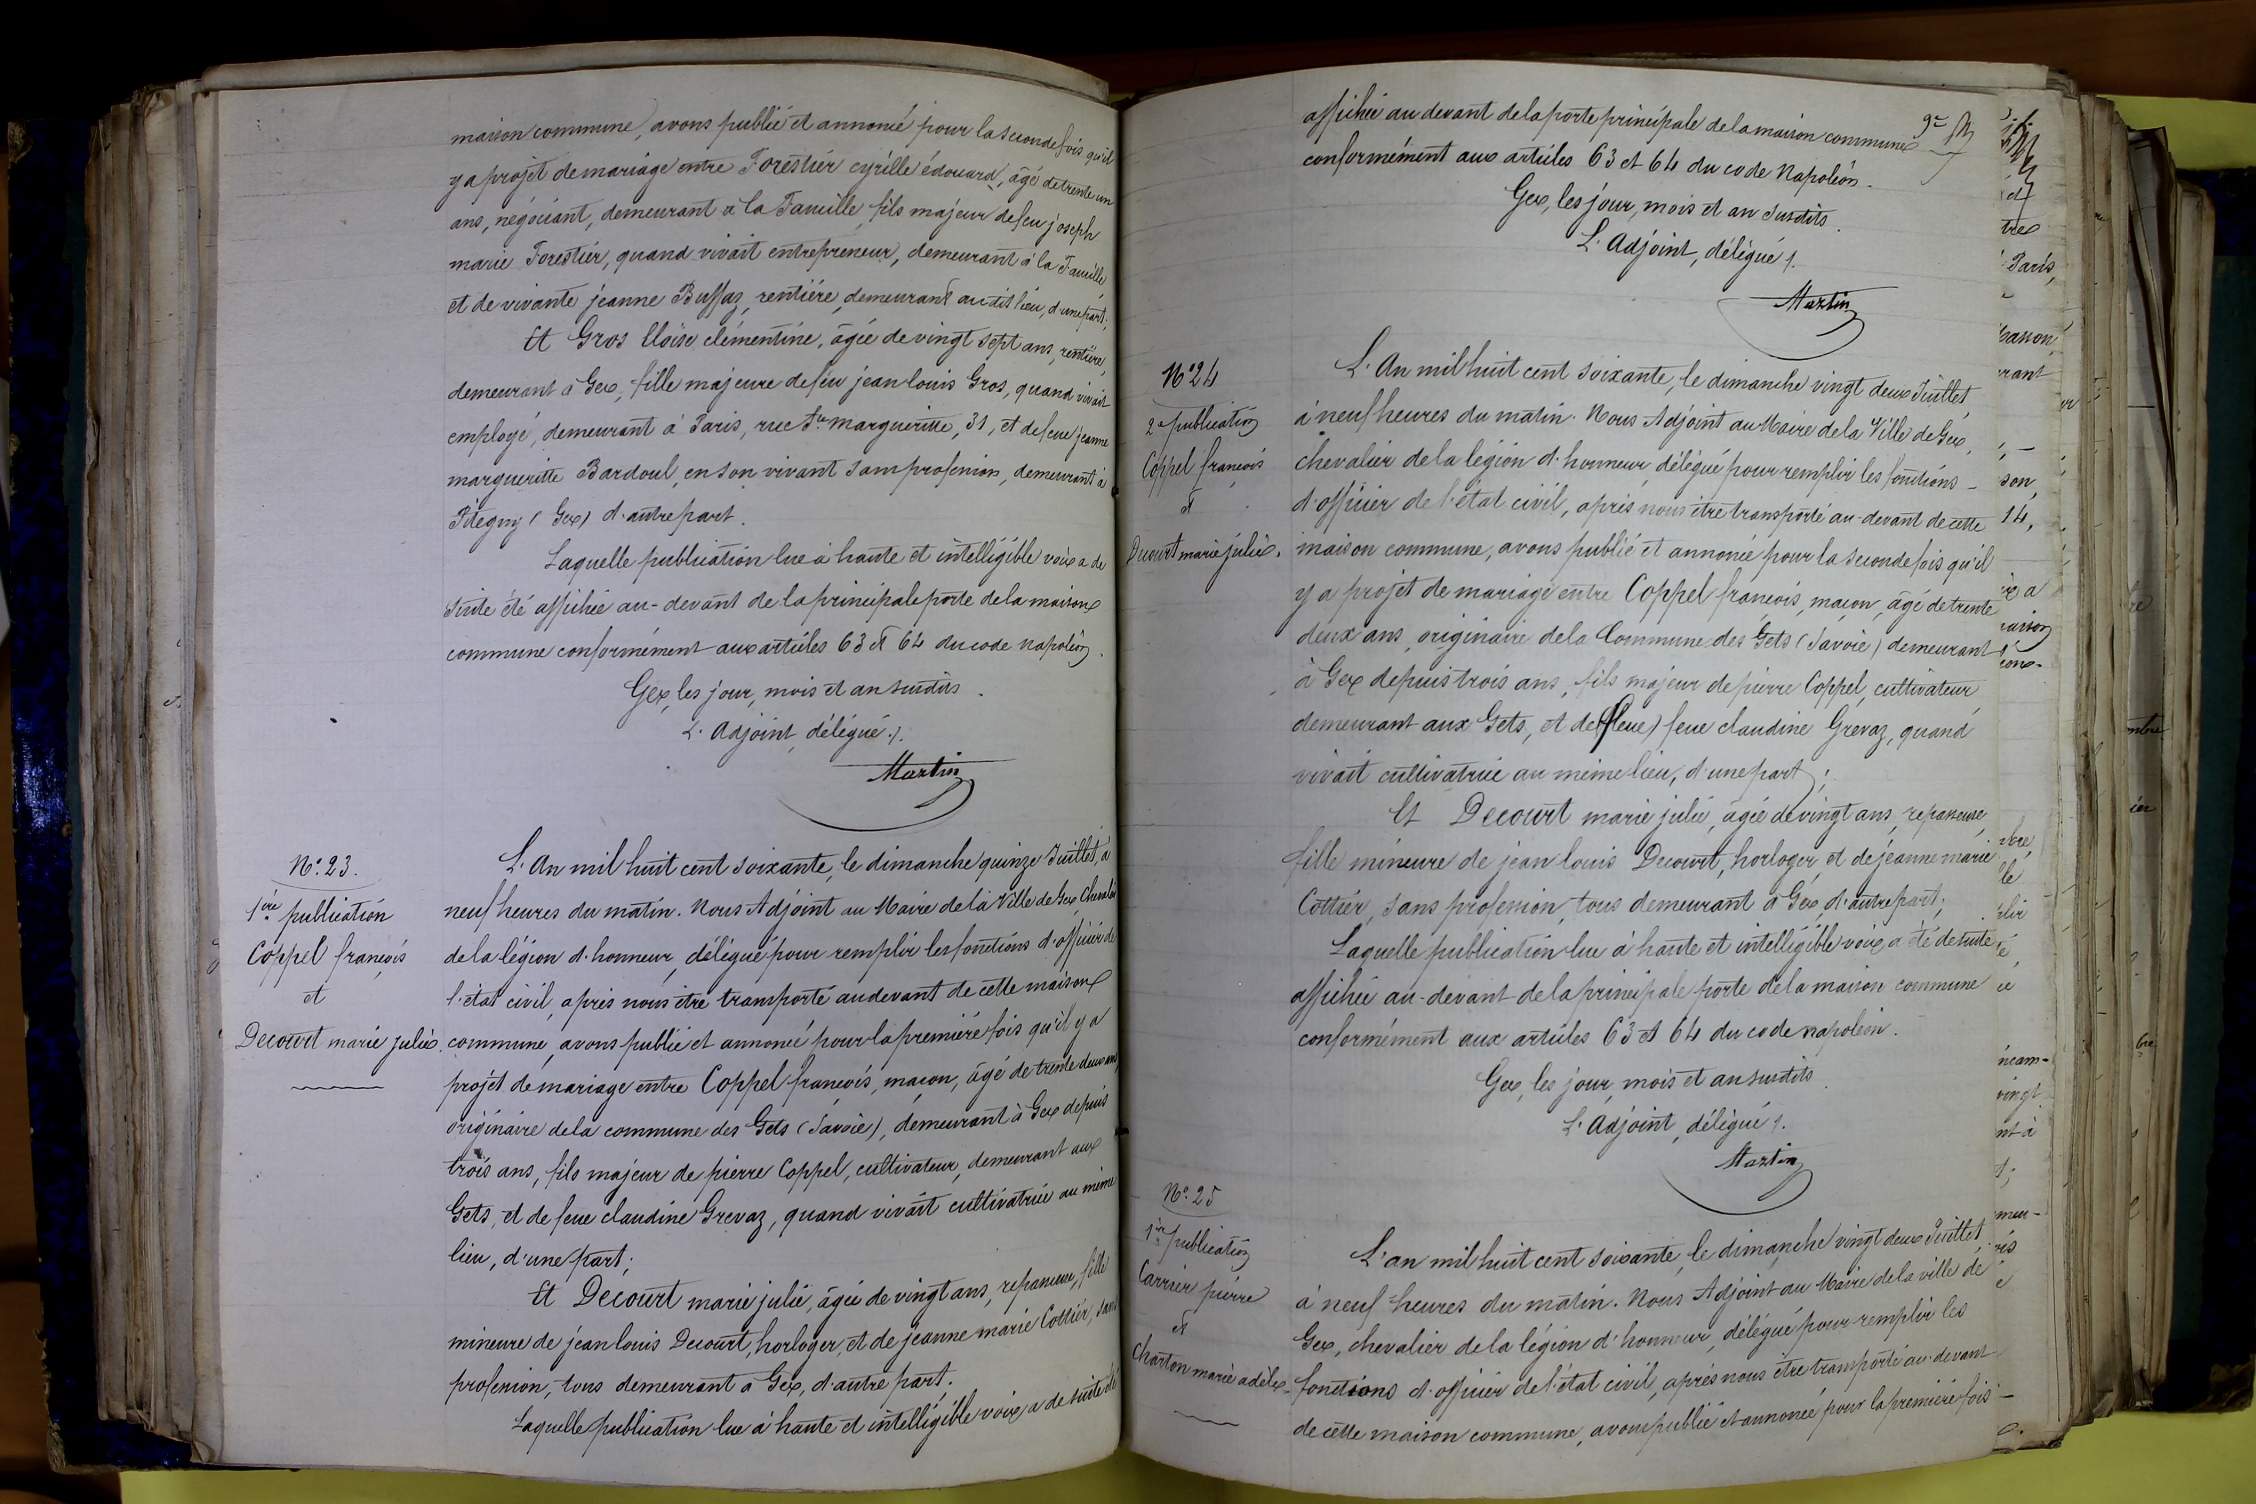 maison commune, avons publié et annoncé pour la seconde fois qu'il
y a projet de mariage entre Forestier cyrille édouard, âgé de trente un
ans, négociant, demeurant à la Faucille, fils majeur de feu joseph
marie Forestier, quand vivait entrepreneur, demeurant à la Faucille
et de vivante jeanne Buffaz, rentière, demeurant au dit lieu, d'une part;
Et Gros Eloise clémentine, âgée de vingt sept ans, rentière,
demeurant à Gex, fille majeure de feu jean louis Gros, quand vivait
employé, demeurant à Paris, rue Ste margueritte, 31, et de feue jeanne
margueritte Bardoul, en son vivant sans profession, demeurant à
(Gex) d'autre part.
Laquelle publication lue à haute et intelligible voix a de
suite été affichée au-devant de la principale porte de la maison
commune conformément aux articles 63 et 64 du code napoléon.
Gex, les jour, mois et an susdits.
L'Adjoint, délégué ./.
Martin
N.° 23.
1ère publication
Coppel françois
et
Decourt marie julie.
L'An mil huit cent soixante, le dimanche quinze Juillet, à
neuf heures du matin. Nous Adjoint au Maire de la Ville de Gex, Chevalier
de la légion d'honneur, délégué pour remplir les fonctions d'officier de
l'état civil, après nous être transporté au devant de cette maison
commune, avons publié et annoncé pour la première fois qu'il y a
projet de mariage entre Coppel françois, maçon, âgé de trente deux ans,
originaire de la commune des Gets (Savoie), demeurant à Gex depuis
trois ans, fils majeur de pierre Coppel, cultivateur, demeurant aux
Gets, et de feue claudine Grevaz, quand vivait cultivatrice au même
lieu, d'une part;
Et Decourt marie julie, âgée de vingt ans, repasseuse, fille
mineure de jean louis Decourt, horloger, et de jeanne marie Cottier, sans
profession, tous demeurant à Gex, d'autre part.
Laquelle publication lue à haute et intelligible voix a de suite été
affichée au devant de la porte principale de la maison commune
conformément aux articles 63 et 64 du code Napoléon.
Gex, les jour, mois et an susdits.
L'Adjoint, délégué ./.
Martin
N° 24
2e publication
Coppel françois
et
Decourt marie julie.
L'An mil huit cent soixante, le dimanche vingt deux Juillet,
à neuf heures du matin. Nous Adjoint au Maire de la Ville de Gex,
chevalier de la légion d'honneur, délégué pour remplir les fonctions
d'officier de l'état civil, après nous être transporté au-devant de cette
maison commune, avons publié et annoncé pour la seconde fois qu'il
y a projet de mariage entre Coppel françois, maçon, âgé de trente
deux ans, originaire de la Commune des Gets (Savoie) demeurant
à Gex depuis trois ans, fils majeur de pierre Coppel, cultivateur,
demeurant aux Gets, et de (feue) feue claudine Grevaz, quand
vivait cultivatrice au même lieu, d'une part;
Et Decourt marie julie, âgée de vingt ans, repasseuse,
fille mineure de jean louis Decourt, horloger, et de jeanne marie
Cottier, sans profession, tous demeurant à Gex, d'autre part;
Laquelle publication lue à haute et intelligible voix a été de suite
affichée au-devant de la principale porte de la maison commune
conformément aux articles 63 et 64 du code napoléon.
Gex, les jour, mois et an susdits.
L'Adjoint, délégué ./.
Martin
N.° 25
1ère publication
Carrier pierre
et
Charton marie adèle
L'an mil huit cent soixante, le dimanche vingt deux Juillet,
à neuf heures du matin. Nous Adjoint au Maire de la ville de
Gex, chevalier de la légion d'honneur, délégué pour remplir les
fonctions d'officier de l'état civil, après nous être transporté au-devant
de cette maison commune, avons publié et annoncé pour la première fois